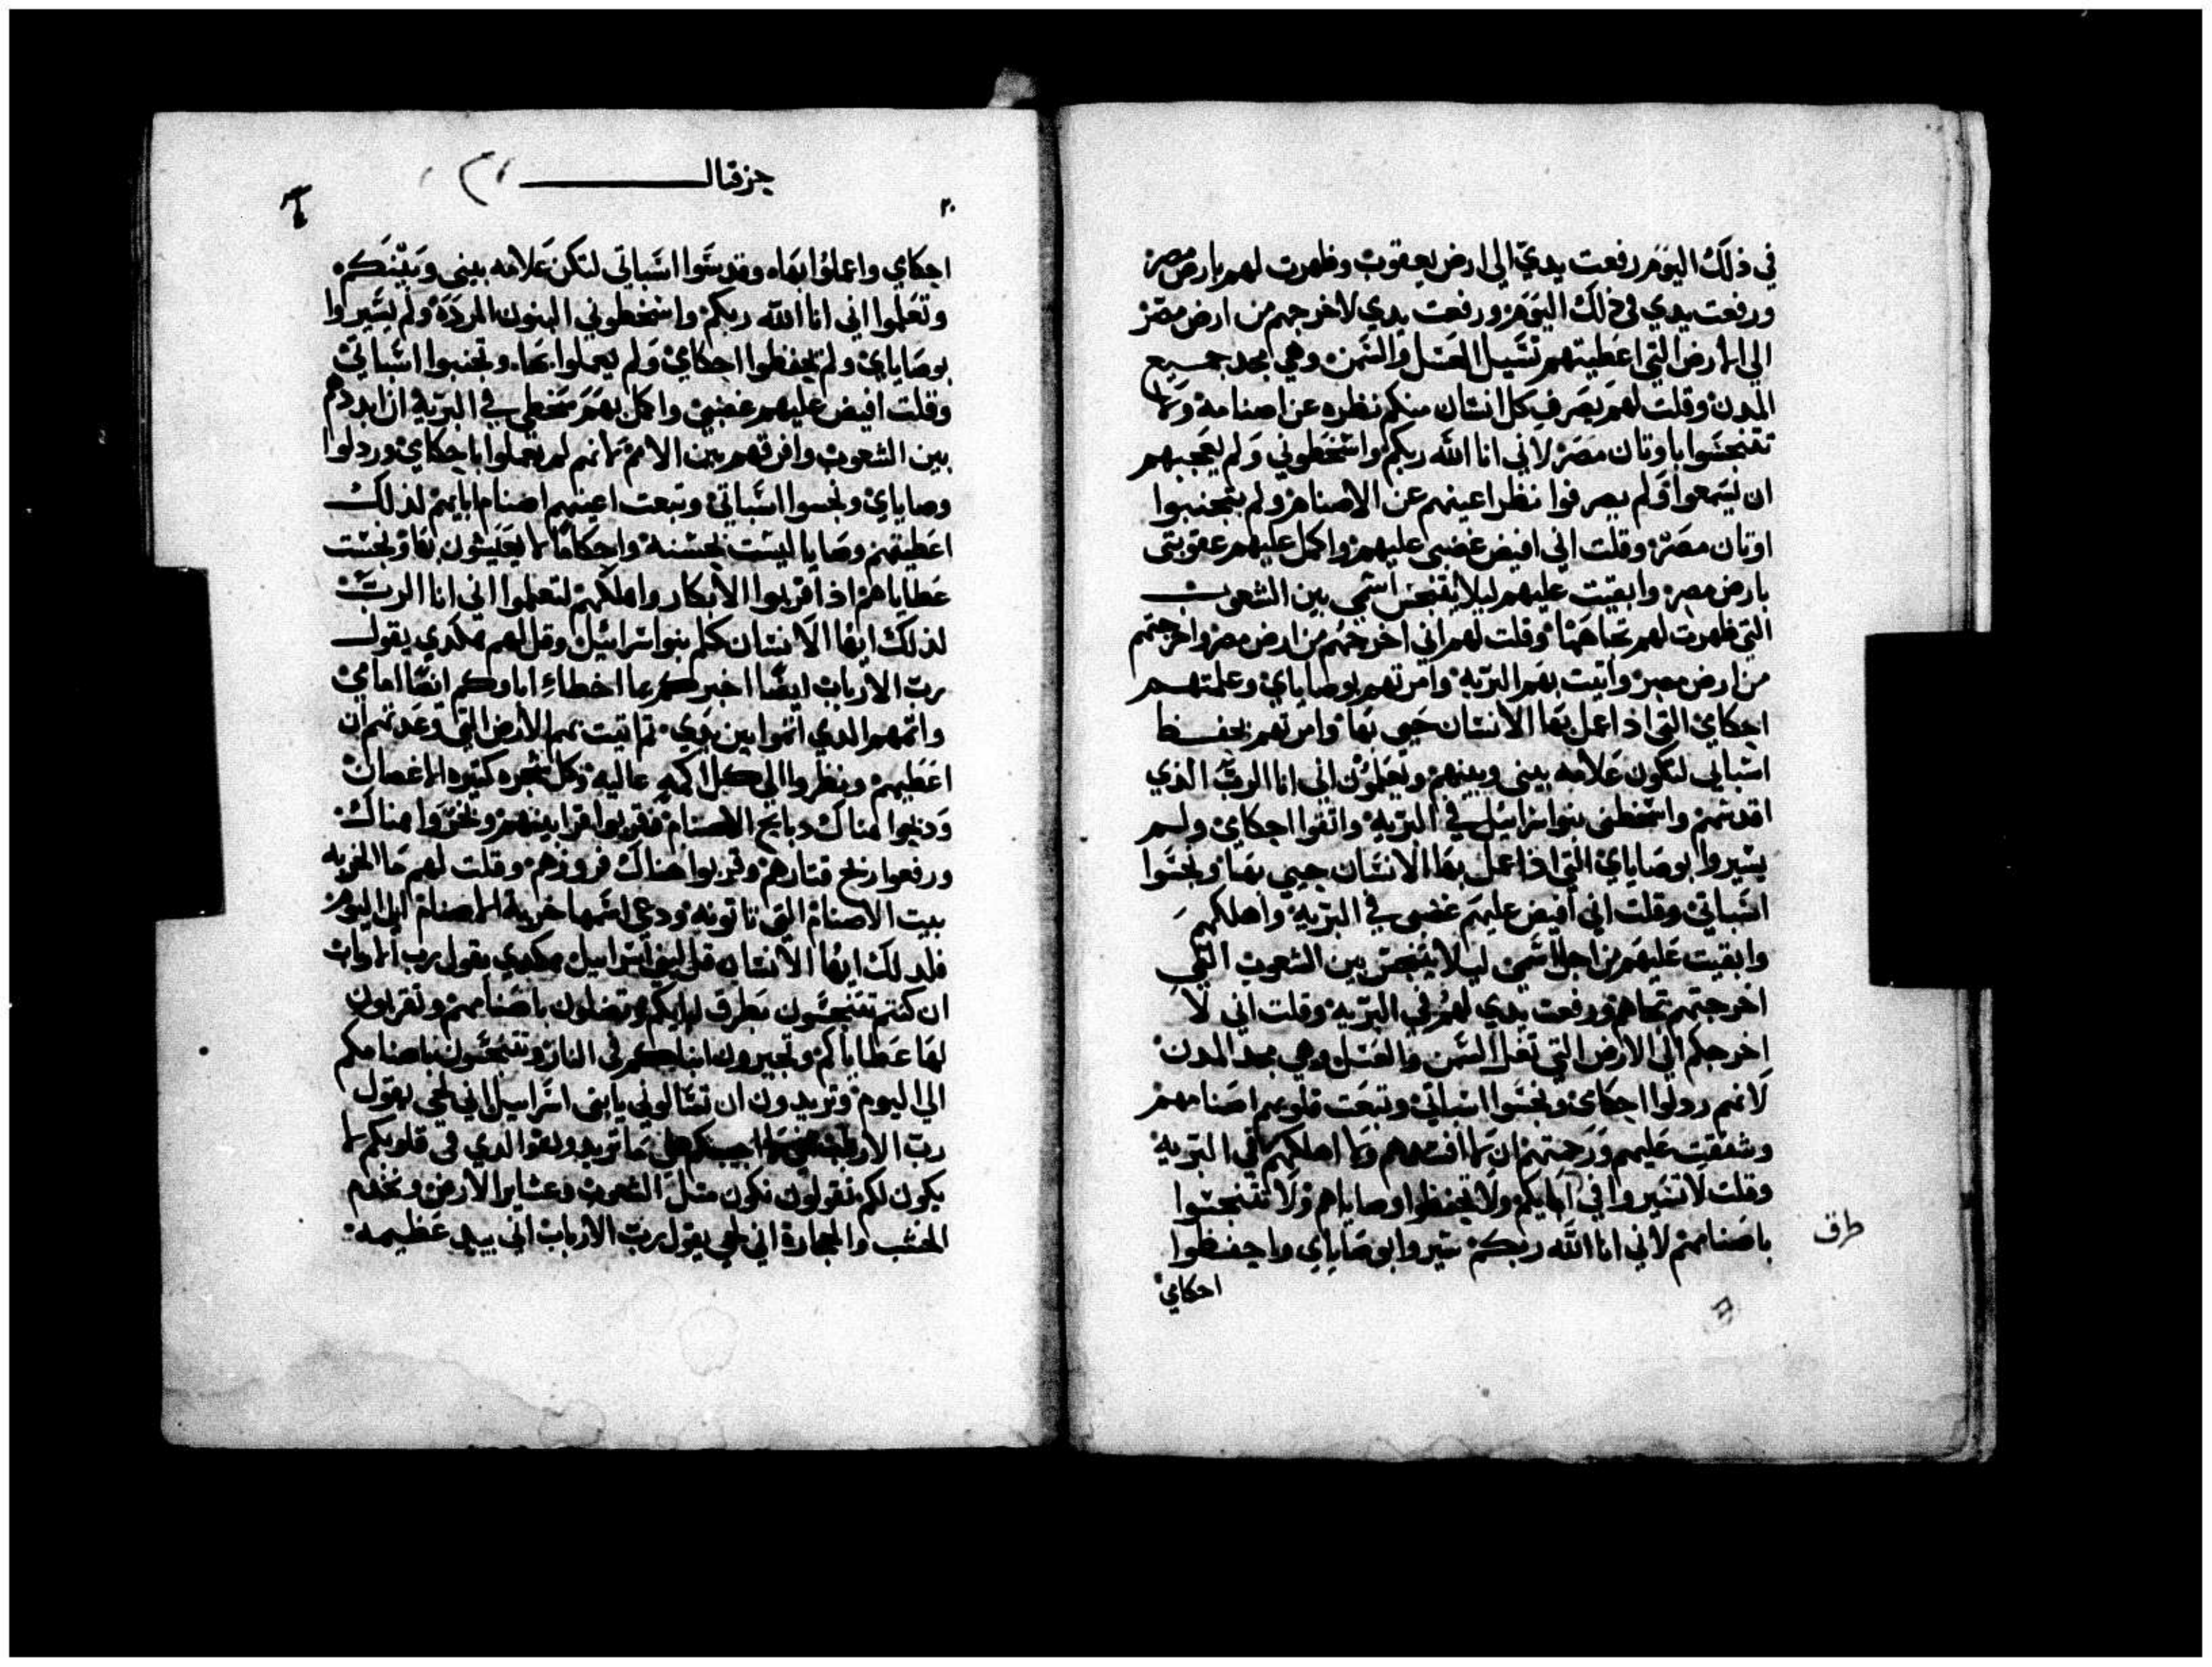 في ذلك اليوم رفعت يدي الي ارض يعقوب وظهرت لهم بارض مصر
ورفعت يدي في ذلك اليوم ورفعت يدي لاخرجهم من ارض مصر
الي الارض التي اعطيتهم تسيل العسل والسمن وهي مجد جميع
المدن وقلت لهم يصرف كل انسان منكم نظره عن اصنامه ولا
تتنجسوا باوتان مصر لاني انا الله ربكم واسخطوني ولم يعجبهم
ان يسمعوا ولم يصرفوا نظر اعينهم عن الاصنام ولم يتجنبوا
اوتان مصر وقلت اني افيض غضبي عليهم واكمل عليهم عقوبتي
بارض مصر وابقيت عليهم ليلا يتنجس اسمي بين الشعوب
التي ظهرت لهم تجاههنا وقلت لهم اني اخرجهم من ارض مصر واخرجتهم
من ارض مصر واتيت بهم البريه وامرتهم بوصاياي وعلمتهم
احكامي التي اذا عمل بها الانسان حيي بها وامرتهم بحفظ
اسباتي لتكون علامه بيني وبينهم ويعلمون اني انا الرب الذي
اقدسهم واسخطني بنوا اسرائيل في البريه واتقوا احكامي ولم
يسيروا بوصاياي التي اذا عمل بها الانسان حيي بها ونجسوا
اسباتي وقلت اني افيض عليهم غضبي في البريه واهلكهم
وابقيت عليهم من اجل اسمي ليلا يتنجس بين الشعوب التي
اخرجتهم تجاههم ورفعت يدي لهم في البريه وقلت اني لا
اخرجكم الي الارض التي تغل السمن والعسل وهي مجد المدن
لانهم ردلوا احكامي ونجسوا اسباتي وتبعت قلوبهم اصنامهم
وشفقت عليهم ورحمتهم ان لا افسدهم ولا اهلكهم في البريه
وقلت لا تسيروا في ابايكم ولا تحفظوا وصاياهم ولا تتنجسوا
باصنامهم لاني انا الله ربكم سيروا بوصاياي واحفظوا
طرق
احكامي
حزقيال
٢٠
احكامي واعملوا بها وقدسوا اسباتي لتكن علامه بيني وبينكم
وتعلموا اني انا الله ربكم واسخطوني البنون المرده ولم يسيروا
بوصاياي ولم يحفظوا احكامي ولم يعملوا بها وتجنبوا اسباتي
وقلت افيض عليهم غضبي واكمل بهم سخطي في البريه ان ابددهم
بين الشعوب وافرقهم بين الامم لانهم لم يعملوا باحكامي وردلوا
وصاياي ونجسوا اسباتي وتبعت اعينهم اصنام ابايهم لذلك
اعطيتهم وصايا ليست بحسنه واحكاما لا يعيشون بها ونجست
عطاياهم اذا قربوا الابكار واهلكهم لتعلموا اني انا الرب
لذلك ايها الانسان كلم بنوا اسرائيل وقل لهم هكدي يقول
رب الارباب ايضا اخبركم بما اخطاء اباوكم ايضا امامي
واتمهم الدي اتموا بين يدي تم اتيت بهم الارض التي وعدتهم ان
اعطيهم ونظروا الي كل اكمه عاليه وكل شجره كتيره الاغصان
ودبحوا هناك دبايح الاصنام وقربوا قرابينهم وبخروا هناك
ورفعوا ريح قتارهم وقربوا هناك فروزهم وقلت لهم ما الخربه
بيت الاصنام التي تاتونه ودعي اسمها خربة الاصنام الي اليوم
فلدلك ايها الانسان قل لبني اسراييل هكدي يقول رب الارباب
ان كنتم تتنجسون بطرق ابايكم وتضلون باصنامهم وتقربون
لها عطاياكم وتجيرون ابناكم في النار وتتنجسون باصنامكم
الي اليوم وتريدون ان تسالوني يا بني اسراييل اني لحي يقول
رب الارباب لا اجيبكم علي ما تريدون والدي في قلوبكم لا
يكون لكم تقولون نكون متل الشعوب وعشاير الارض ونخدم
الخشب والحجاره اني لحي يقول رب الارباب اني بيد عظيمه